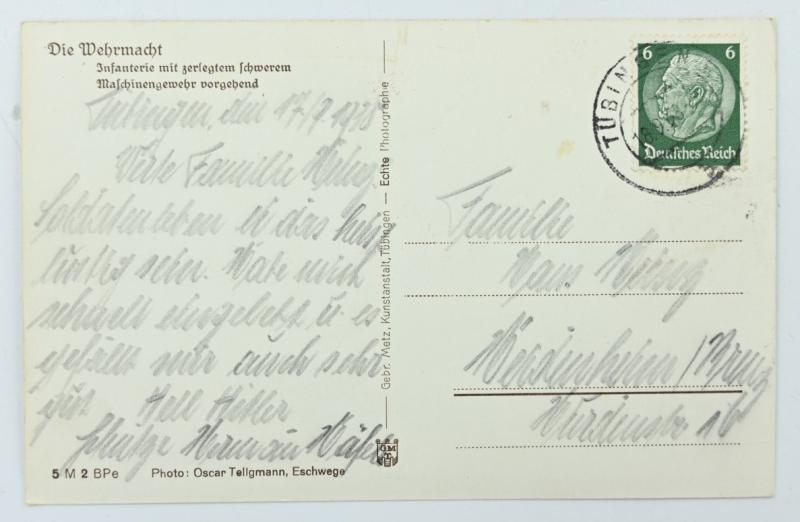 Die Wehrmacht
Infanterie mit zerlegtem schwerem
Maschinengewehr vorgehend
Tübingen, den 17/7 1938
Werte Familie
Soldatenleben ei das
lustig sein. Habe mich
schnell eingelebt u. es
gefällt mir auch sehr
gut Heil Hitler
Schütze Herman
5 M 2 BPe Photo: Oscar Tellgmann, Eschwege
Gebr. Metz, Kunstanstalt, Tübingen — Echte Photographie
GM
TÜBINGEN
6 6
Deutsches Reich
Familie
Hans